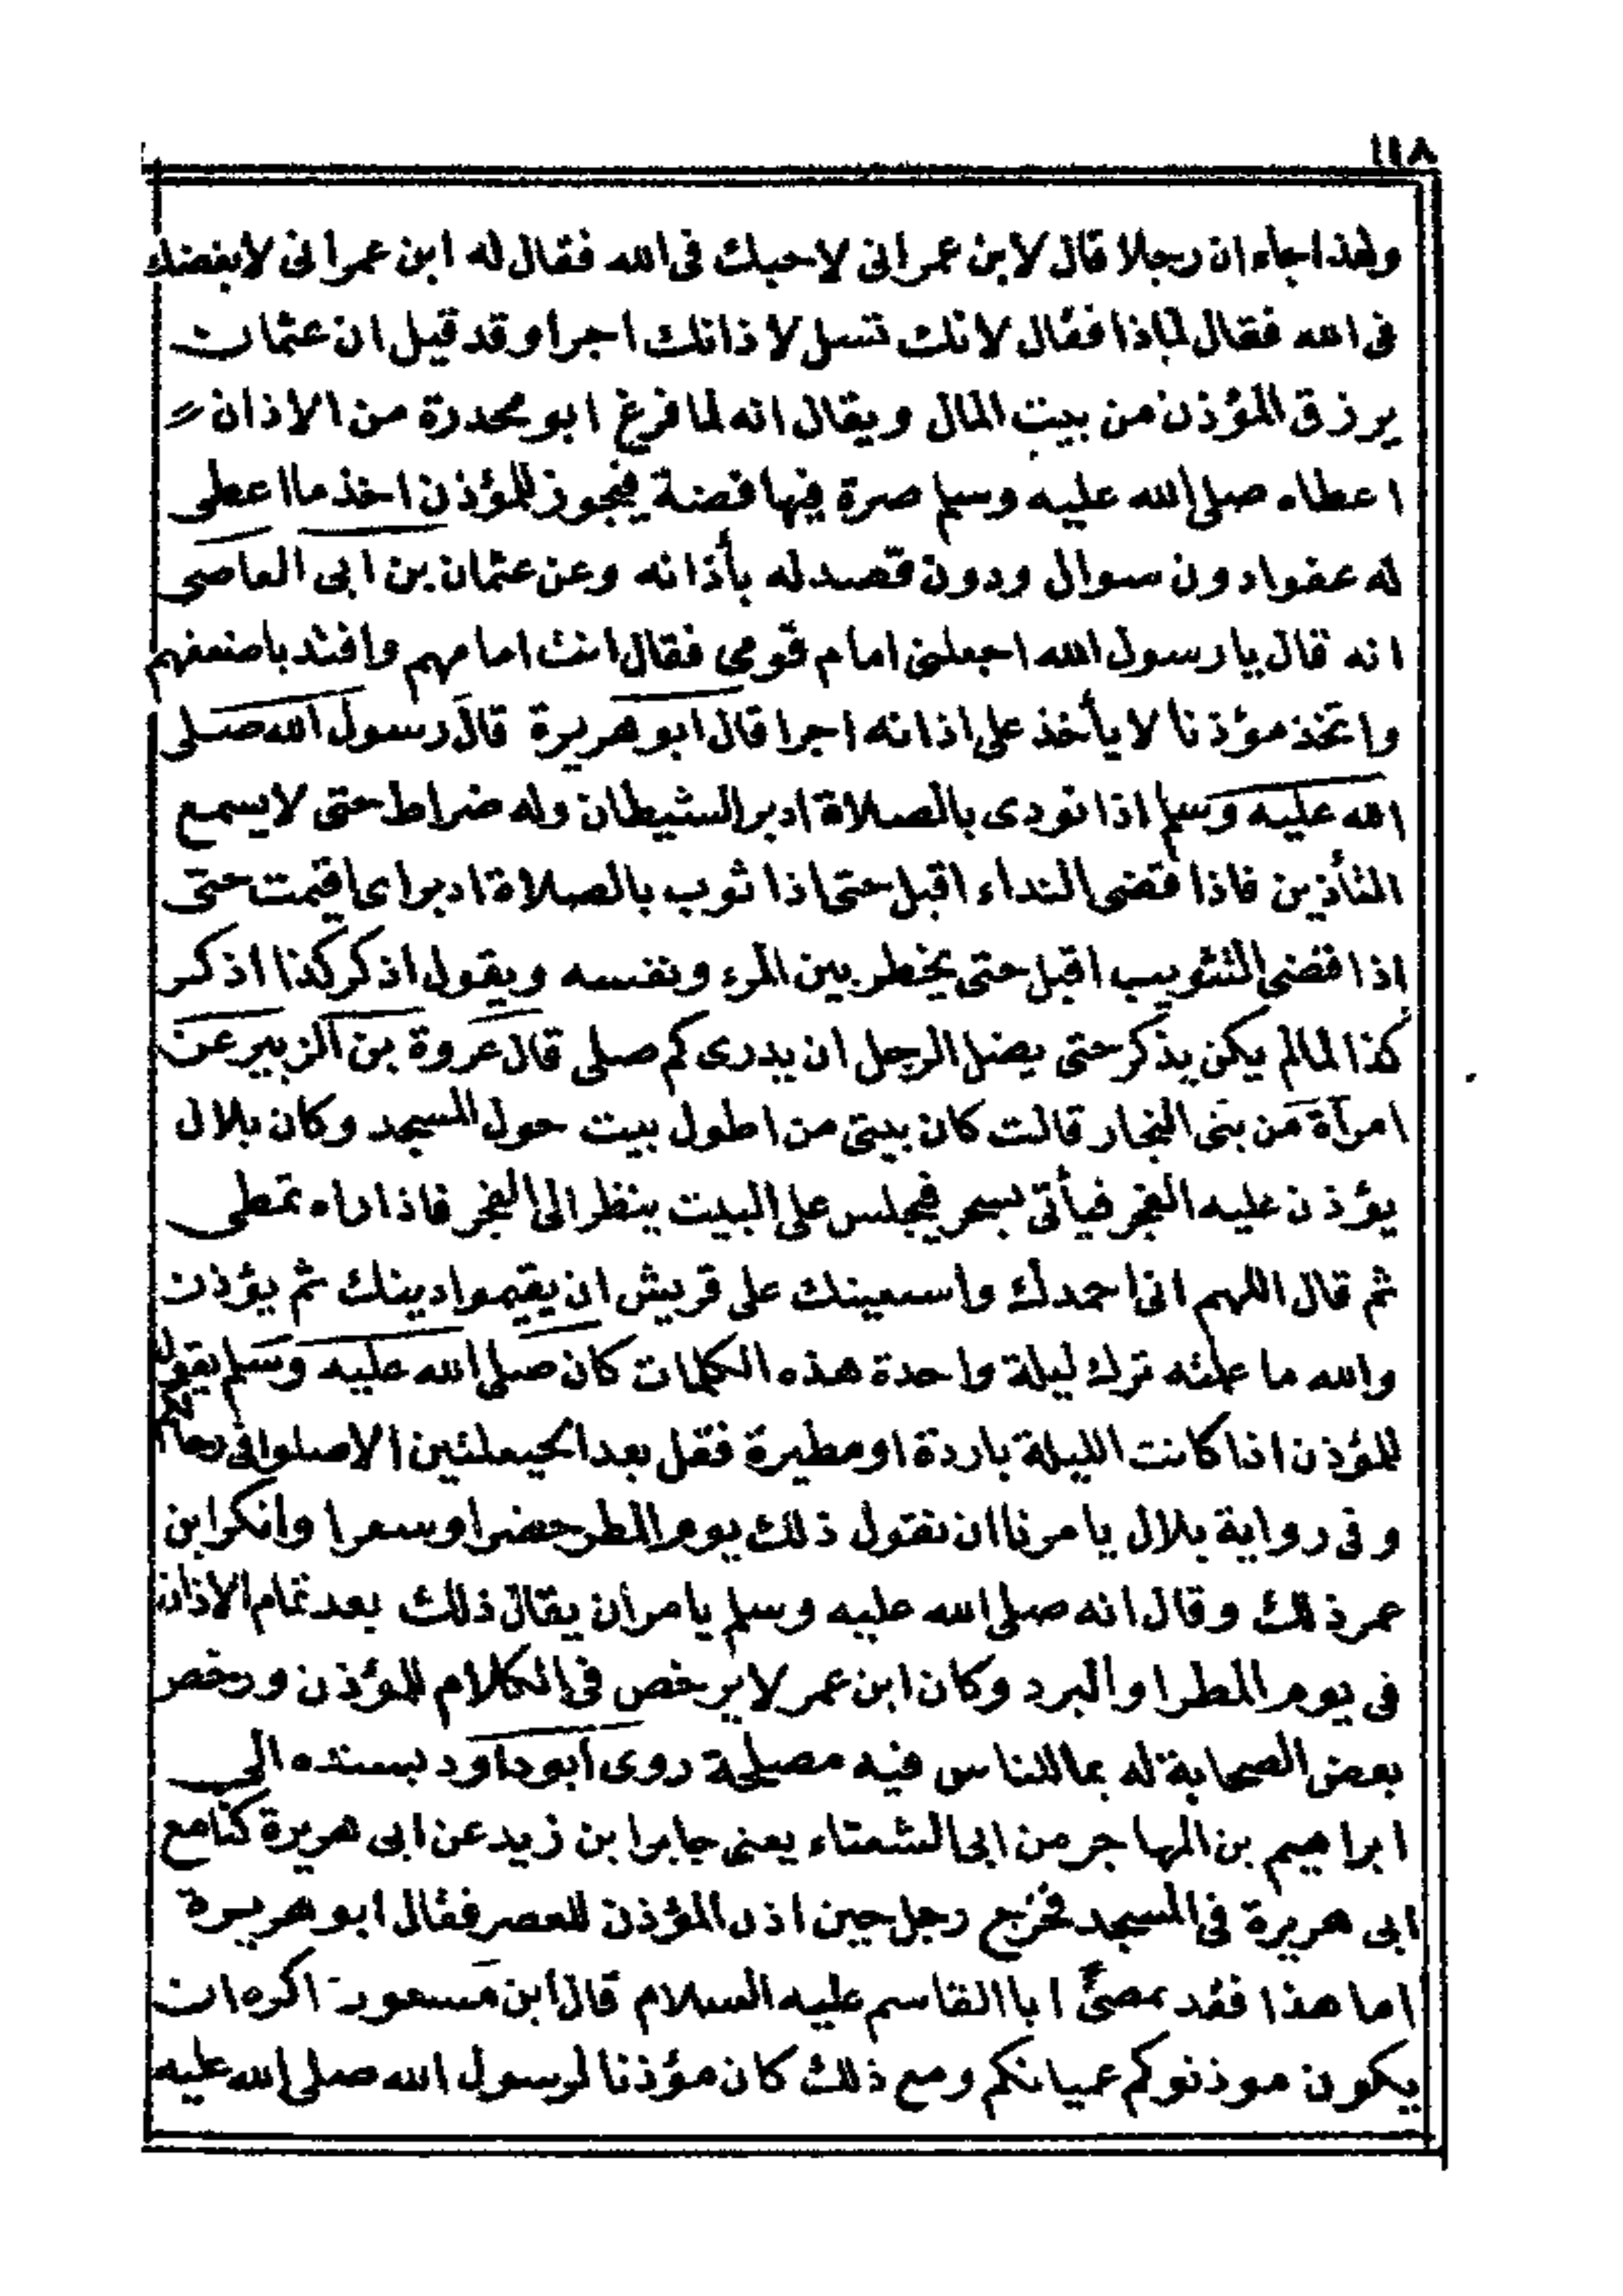 ١١٨
ولهذا جاء ان رجلا قال لابن عمر انى لاحبك فى الله فقال له ابن عمر انى لابغضك
فى الله فقال لماذا فقال لانك تسئل لاذانك اجرا وقد قيل ان عثمان
يرزق المؤذن من بيت المال ويقال انه لما فرغ ابو محدرة من الاذان
اعطاه صلى الله عليه وسلم صرة فيها فضة فيجوز للمؤذن اخذ ما اعطى
له عفوا دون سوال ودون قصد له بأذانه وعن عثمان بن ابى العاصى
انه قال يا رسول الله اجعلنى امام قومى فقال انت امامهم وافتد باضعفهم
واتخذ مؤذنا لا يأخذ على اذانه اجرا قال ابو هريرة قال رسول الله صلى
الله عليه وسلم اذا نودى بالصلاة ادبر الشيطان وله ضراط حتى لا يسمع
التأذين فاذا قضى النداء اقبل حتى اذا ثوب بالصلاة ادبر اى اقيمت حتى
اذا قضى التثويب اقبل حتى يخطر بين المرء ونفسه ويقول اذكر كذا اذكر
كذا لما لم يكن يذكر حتى يضل الرجل ان يدرى كم صلى قال عروة بن الزبير عن
امرأة من بنى النجار قالت كان بيتى من اطول بيت حول المسجد وكان بلال
يؤذن عليه الفجر فيأتى بسحر فيجلس على البيت ينظر الى الفجر فاذا راه تمطى
ثم قال اللهم انى احمدك واستعينك على قريش ان يقيموا دينك ثم يؤذن
والله ما علمته ترك ليلة واحدة هذه الكلمات كان صلى الله عليه وسلم يقول
للمؤذن اذا كانت الليلة باردة او مطيرة فقل بعد الحيعلتين الا صلوا فى رحالكم
وفى رواية بلال يامرنا ان نقول ذلك يوم المطر حضرا وسفرا وانكر ابن
عمر ذلك وقال انه صلى الله عليه وسلم يامر ان يقال ذلك بعد تمام الاذان
فى يوم المطر او البرد وكان ابن عمر لا يرخص فى الكلام للمؤذن ورخص
بعض الصحابة له بما للناس فيه مصلحة روى ابو داود بسنده الى
ابراهيم بن المهاجر من ابى الشعثاء يعنى جابرا بن زيد عن ابى هريرة كنا مع
ابى هريرة فى المسجد فخرج رجل حين اذن المؤذن للعصر فقال ابو هريرة
اما هذا فقد عصى ابا القاسم عليه السلام قال ابن مسعود اكره ان
يكون موذنوكم عميانكم ومع ذلك كان مؤذنا لرسول الله صلى الله عليه